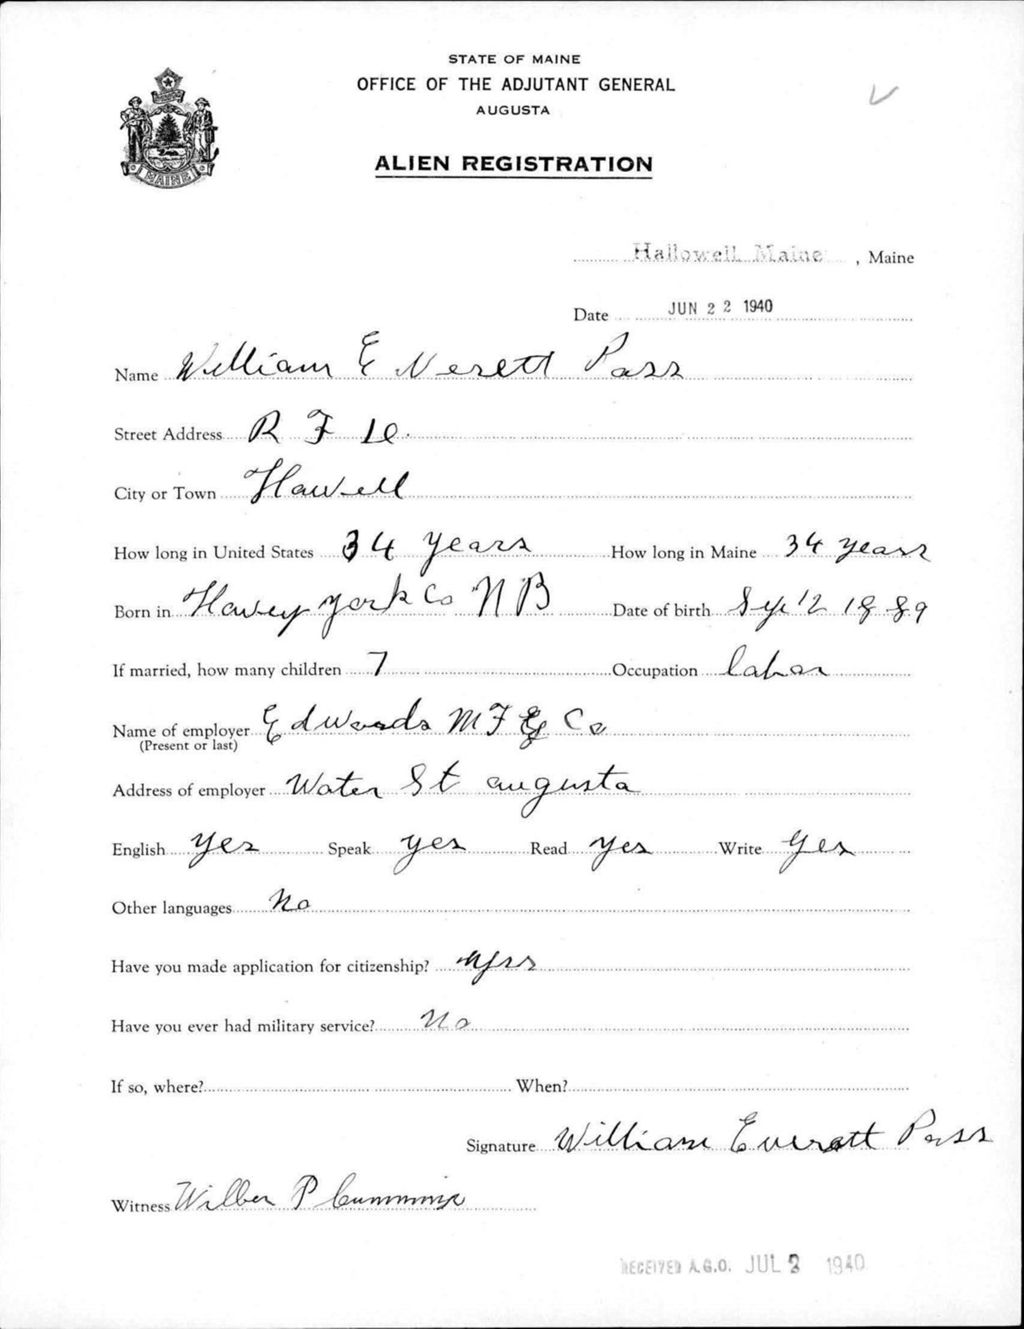 STATE OF MAINE
OFFICE OF THE ADJUTANT GENERAL
AUGUSTA
ALIEN REGISTRATION
MAINE
Hallowell, Maine , Maine
Date JUN 22 1940
Name William E Verett Pass
Street Address R F D.
City or Town Hawell
How long in United States 34 years How long in Maine 34 years
Born in Harvey York Co N B Date of birth 12 1889
If married, how many children 7 Occupation labor
Name of employer Edwards MFG Co
(Present or last)
Address of employer Water St augusta
English yes Speak yes Read yes Write yes
Other languages No
Have you made application for citizenship? yes
Have you ever had military service? No
If so, where? When?
Signature William Everett Pass
Witness Wilber P Cummings
RECEIVED A.G.O. JUL 2 1940